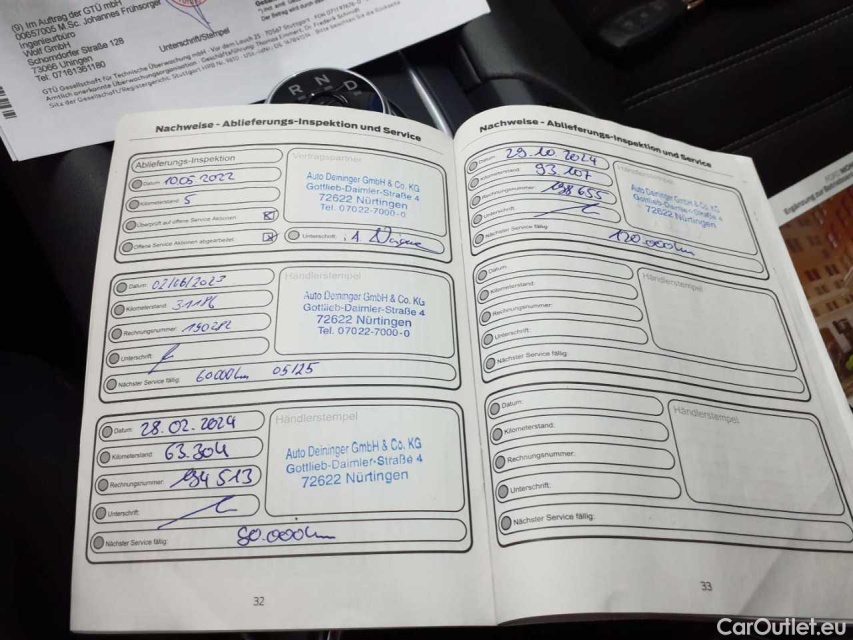 (9) Im Auftrag der GTÜ mbH
00057005 M.Sc. Johannes Frühsorger
Ingenieurbüro
Wolf GmbH
Schorndorfer Straße 128
73066 Uhingen
Tel: 07161361180
Unterschrift/Stempel
R N D
Nachweise - Ablieferungs-Inspektion und Service
Ablieferungs-Inspektion
Datum: 10.05.2022
Kilometerstand: 5
Überprüft auf offene Service Aktionen:
Offene Service Aktionen abgearbeitet:
Unterschrift:
Vertragspartner
Auto Deininger GmbH & Co. KG
Gottlieb-Daimler-Straße 4
72622 Nürtingen
Tel. 07022-7000-0
Datum: 02/06/2023
Kilometerstand: 31186
Rechnungsnummer: 190282
Unterschrift:
Nächster Service fällig: 60000km 05/25
Händlerstempel
Auto Deininger GmbH & Co. KG
Gottlieb-Daimler-Straße 4
72622 Nürtingen
Tel. 07022-7000-0
Datum: 28.02.2024
Kilometerstand: 63.304
Rechnungsnummer: 194513
Unterschrift:
Nächster Service fällig: 90.000km
Händlerstempel
Auto Deininger GmbH & Co. KG
Gottlieb-Daimler-Straße 4
72622 Nürtingen
32
Nachweise - Ablieferungs-Inspektion und Service
Datum: 29.10.2024
Kilometerstand: 93.107
Rechnungsnummer: 198655
Unterschrift:
Nächster Service fällig: 120.000km
Händlerstempel
Auto Deininger GmbH & Co. KG
Gottlieb-Daimler-Straße 4
72622 Nürtingen
Datum:
Kilometerstand:
Rechnungsnummer:
Unterschrift:
Nächster Service fällig:
Händlerstempel
Datum:
Kilometerstand:
Rechnungsnummer:
Unterschrift:
Nächster Service fällig:
Händlerstempel
33
CarOutlet.eu